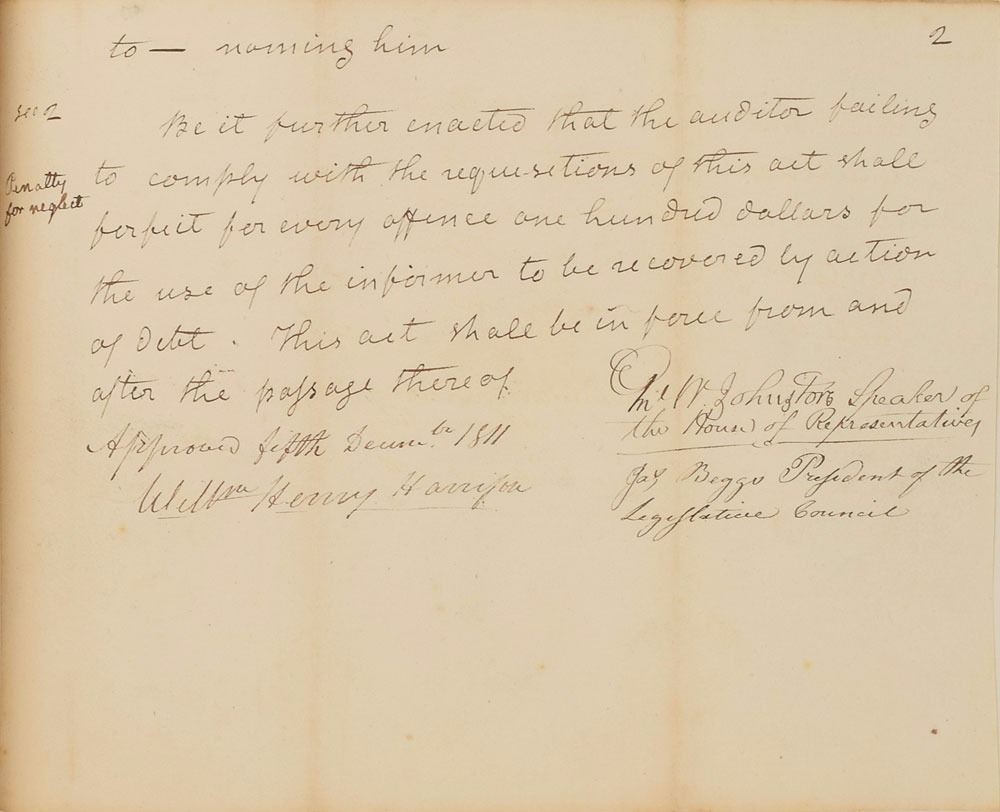 2
to — naming him
Sec 2
Be it further enacted that the auditor failing
Penalty
for neglect
to comply with the requisetions of this act shall
forfiet for every offence one hundred dollars for
the use of the informer to be recovered by action
of debt. This act shall be in force from and
after the passage thereof
Approved fifth Decem.br 1811
Willm Henry Harrison
Gnl W. Johnston Speaker of
the House of Representatives
Jas Beggs President of the
Legislative Council